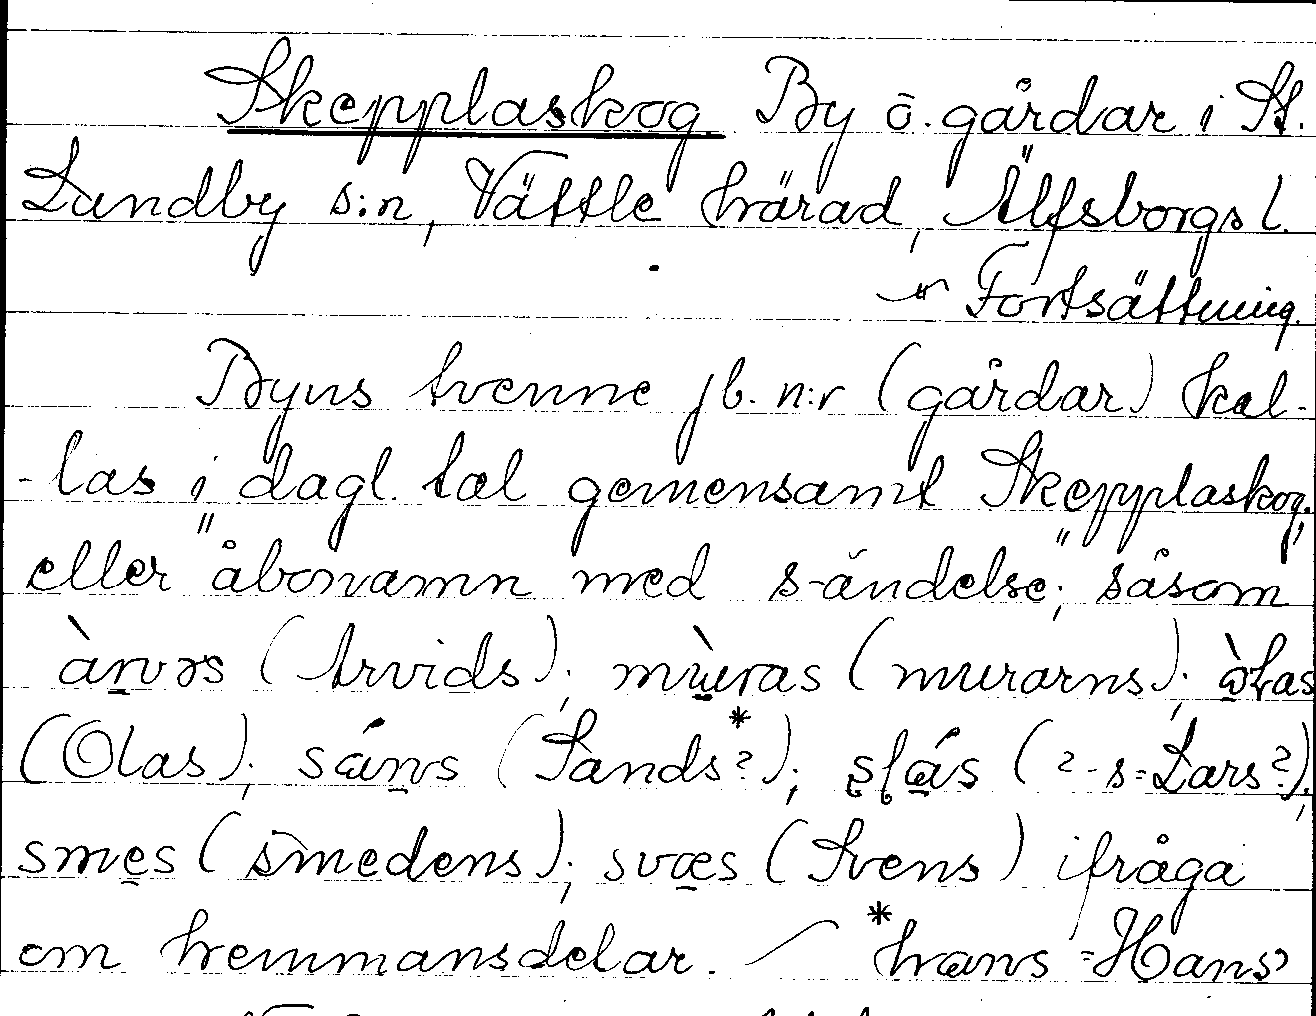 Skepplaskog By o. gårdar i St.
Lundby s:n, Vättle härad, Älfsborgs l.
Fortsättning.
Byns tvenne jb. n:r (gårdar) kal-
-las i dagl. tal gemensamt Skepplaskog,
eller "åbonamn med s-ändelse;" såsom
àrvəs (Arvids); mùras (murarns);
(Olas); sáns (Sands?*); slás (?-s=Lars?);
smes (smedens); svæs (Svens) ifråga
om hemmansdelar. *hans =Hans?